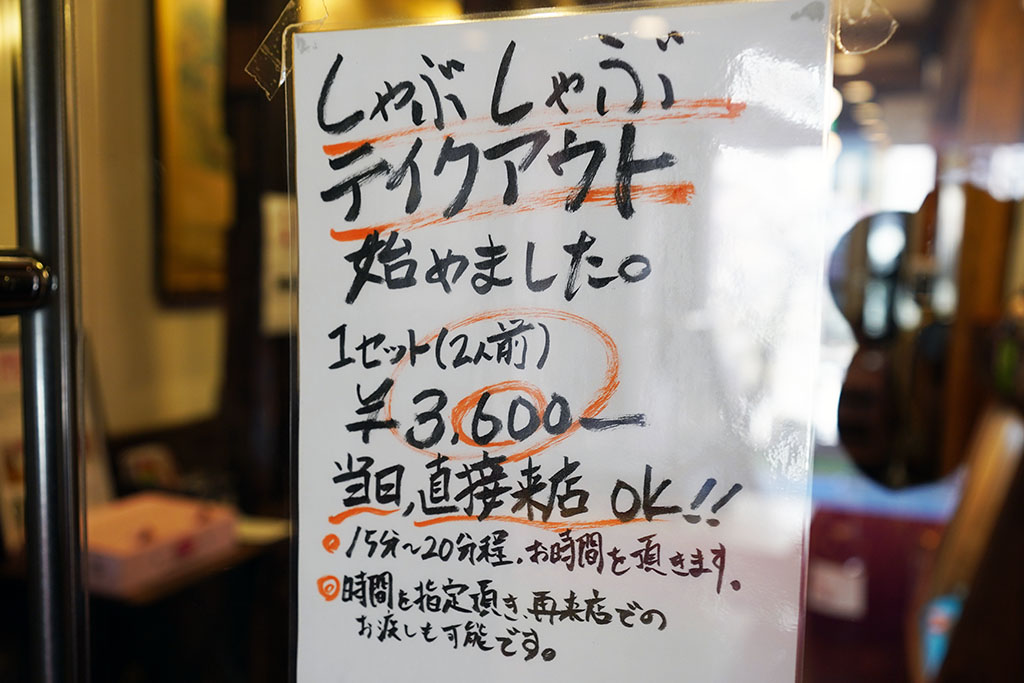 しゃぶしゃぶ
テイクアウト
始めました。
1セット(2人前)
¥3,600ー
当日,直接来店 OK!!
・15分~20分程、お時間を頂きます。
◎時間を指定頂き、再来店での
お渡しも可能です。